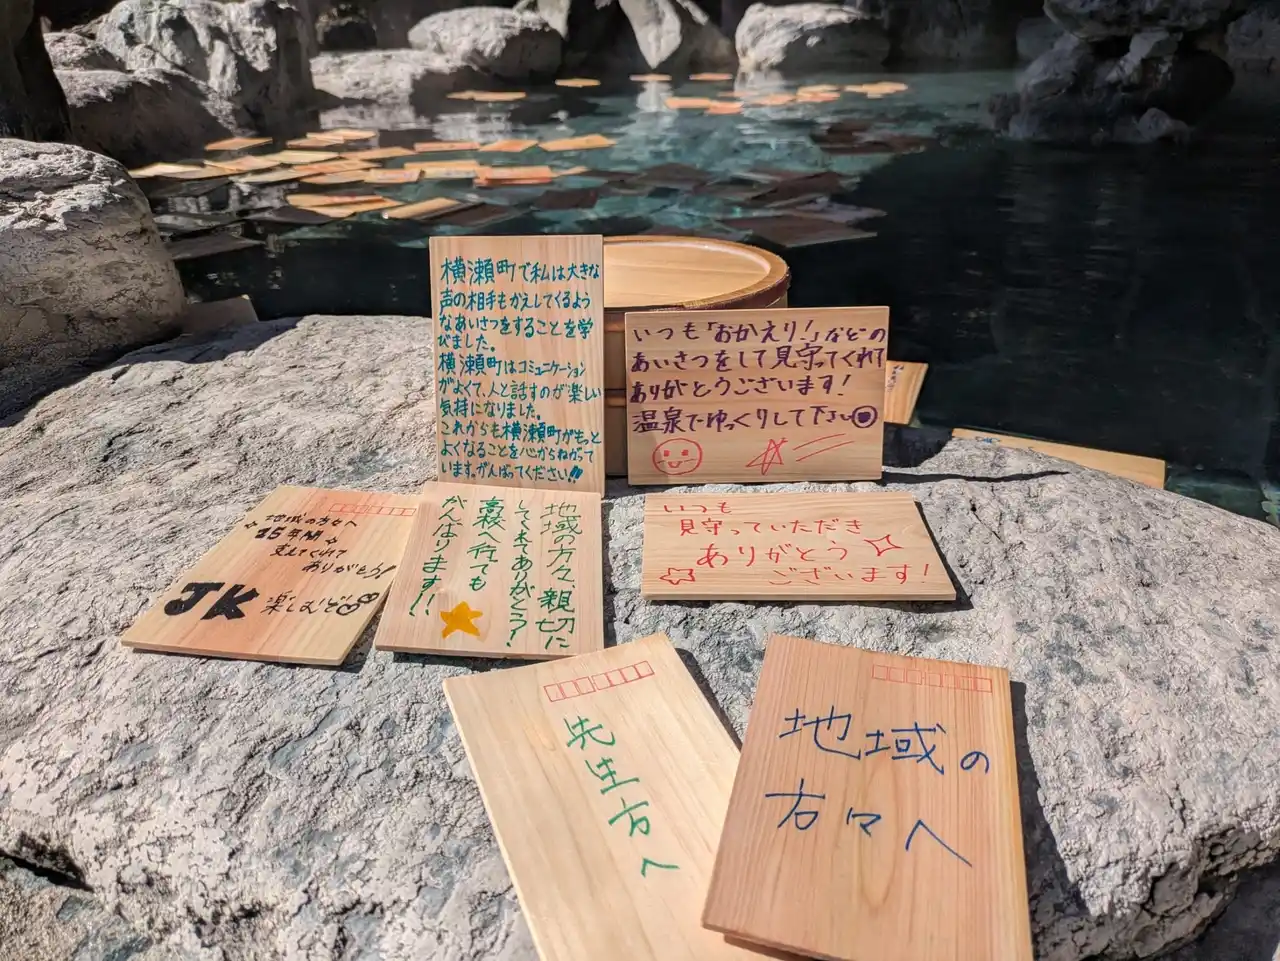 横瀬町で私は大きな
声の相手もかえしてくるよう
なあいさつをすることを学
びました。
横瀬町はコミュニケーション
がよくて、人と話すのが楽しい
気持になりました。
これからも横瀬町がもっと
よくなることを心からねがって
います。がんばってください!!
いつも「おかえり!」などの
あいさつをして見守ってくれて
ありがとうございます!
温泉でゆっくりして下さい
地域の方々へ
15年間
支えてくれて
ありがとう!
JK 楽しむぞ
地域の方々、親切に
してくれてありがとう?
高校へ行ても
がんばります!!
いつも
見守っていただき
ありがとう
ございます!
先生方へ
地域の
方々へ